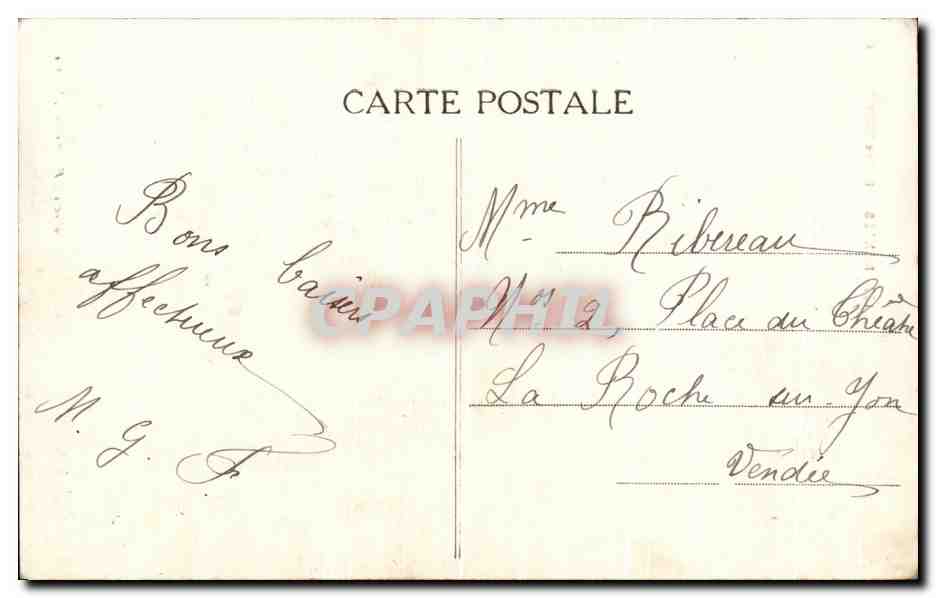 CARTE POSTALE
Bons baisers
affectueux
M. G. F
Mme Ribereau
Nos 2, Place du Théâtre
La Roche sur-Yon
Vendée
CPAPHIL